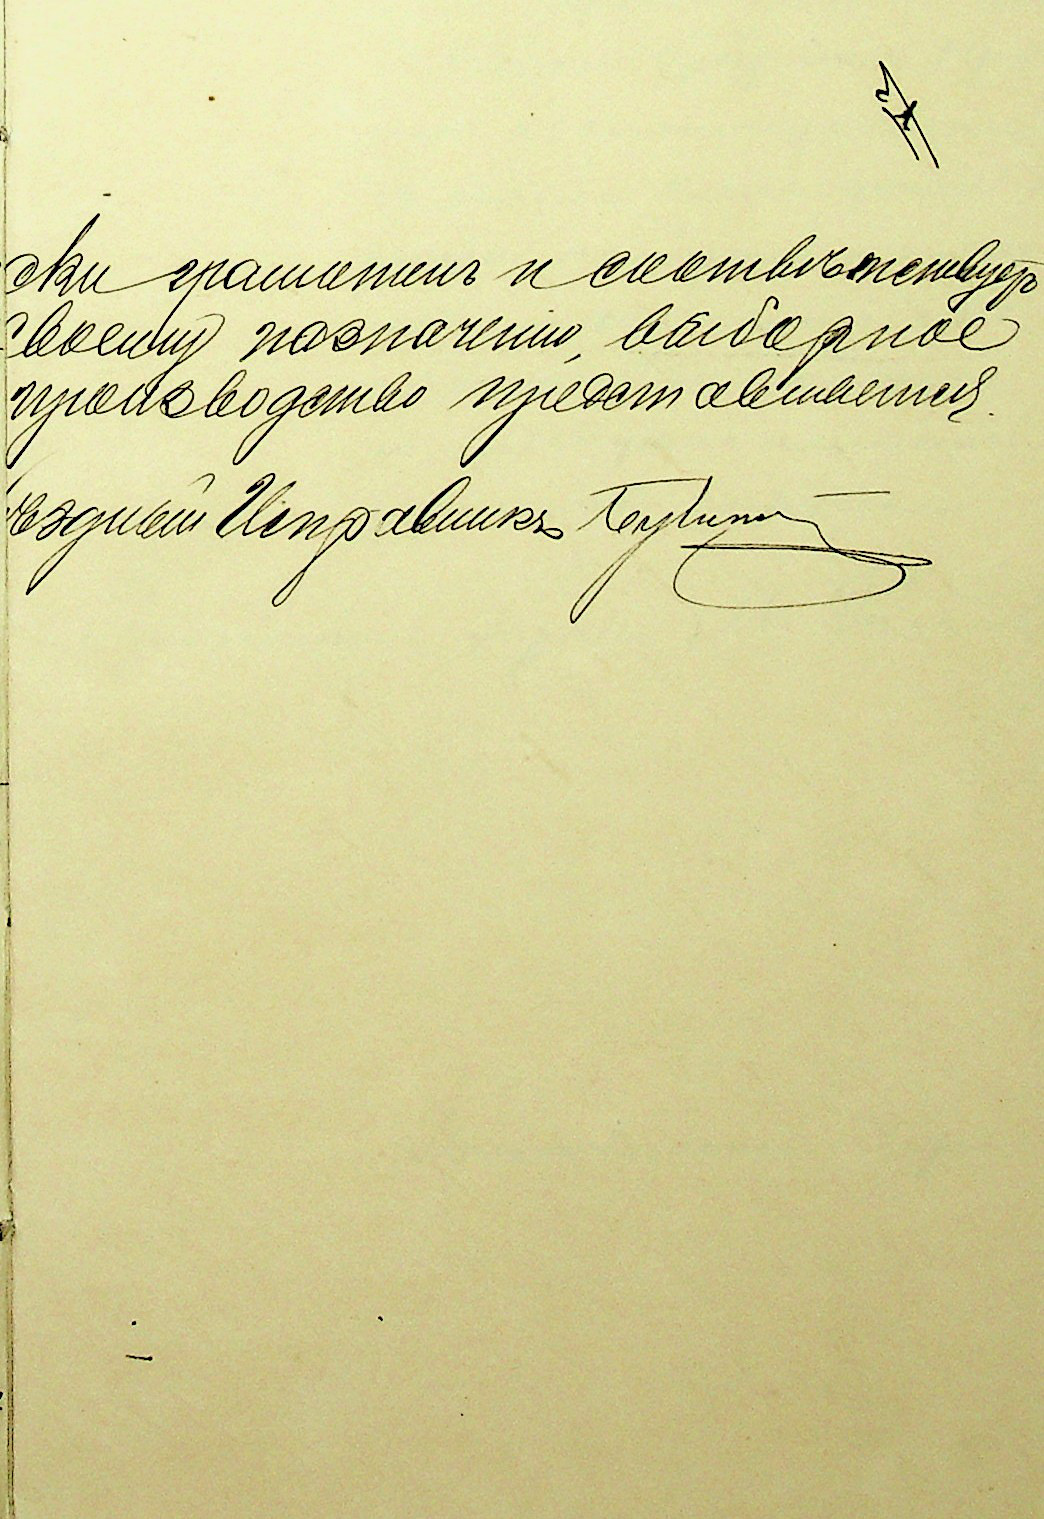 жки грамотенъ и соотвѣтствуетъ
своему назначенію, выборное
производство представляется.
уѣздный Исправникъ